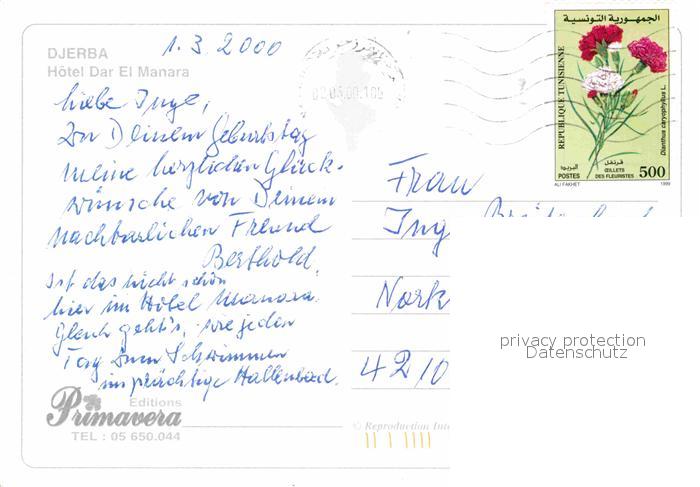 DJERBA
Hôtel Dar El Manara
1.3.2000
Liebe Inge,
zu Deinem Geburtstag
meine herzlichen Glück-
wünsche von Deinem
nachbarlichen Freund
Berthold.
Ist das nicht schön
hier im Hotel Manara.
Gleich geht's, wie jeden
Tag zum Schwimmen
ins prächtige Hallenbad.
Editions
Primavera
TEL : 05 650.044
الجمهورية التونسية
REPUBLIQUE TUNISIENNE
Dianthus caryophyllus L.
قرنفل
البريد
POSTES
ŒILLETS
DES FLEURISTES
500
ALI FAKHET
1999
Frau
Ing
Nork
42/0
privacy protection
Datenschutz
© Reproduction Inte